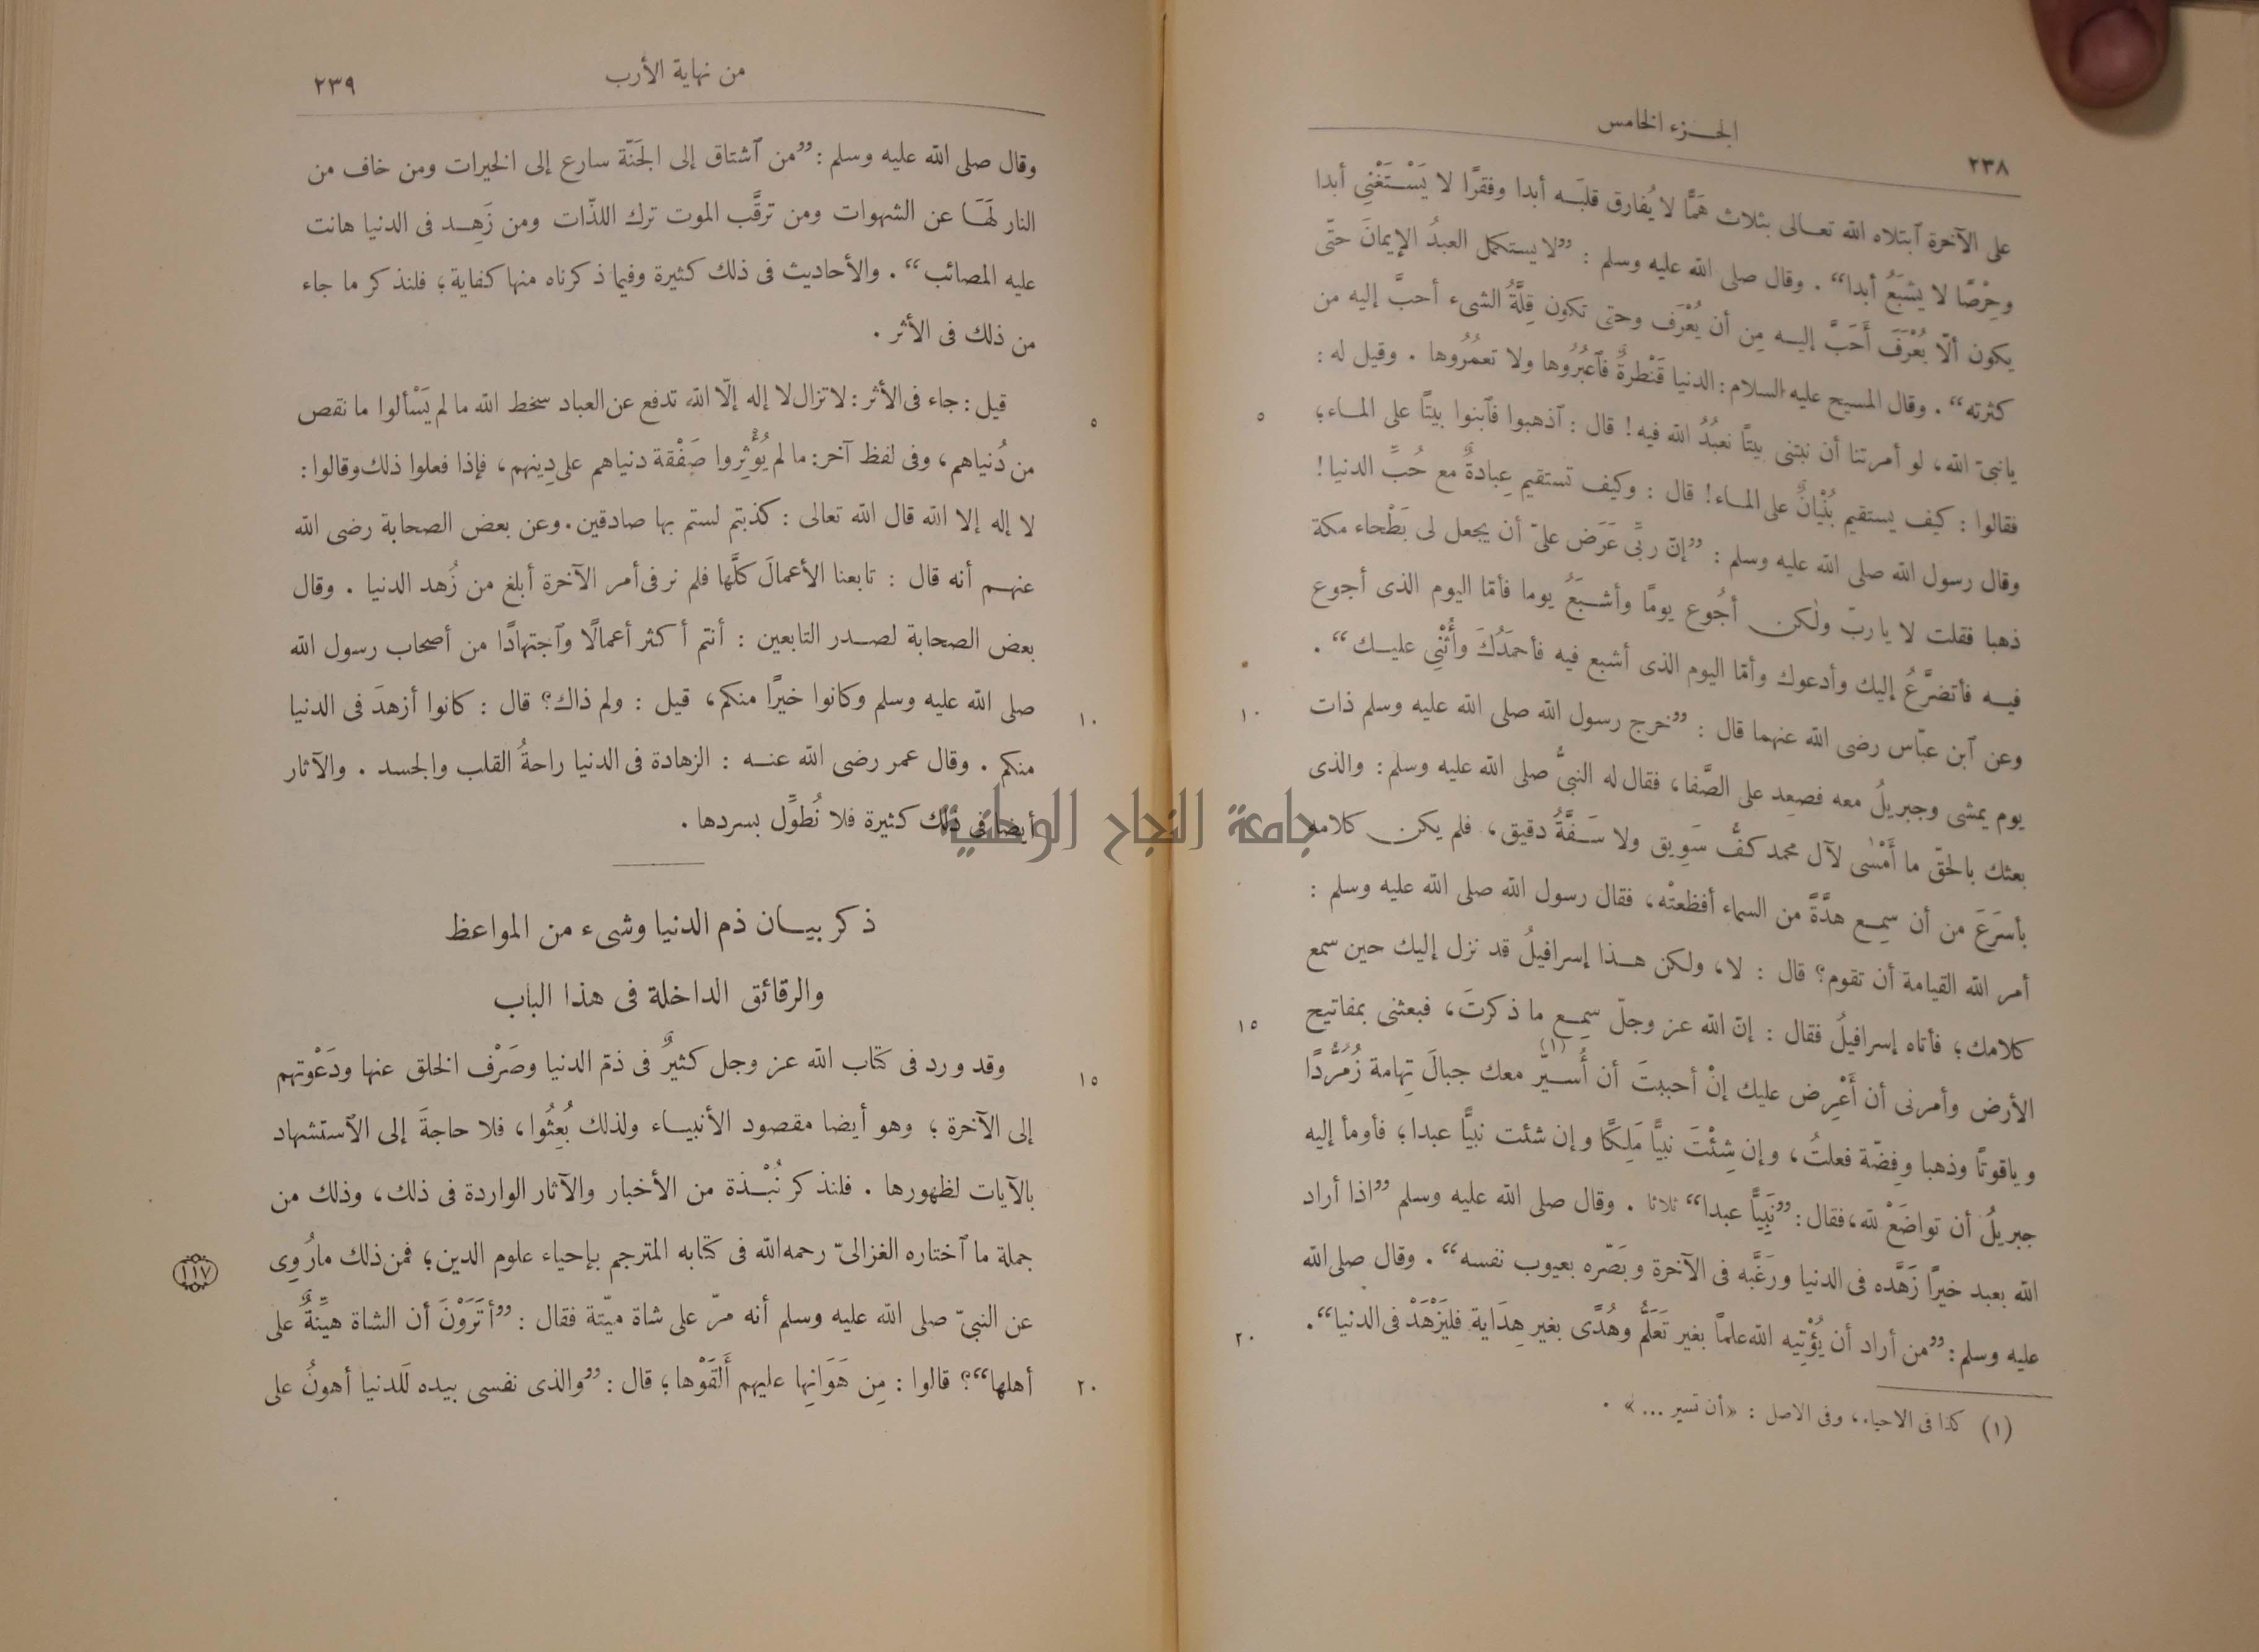 الجـزء الخامس
٢٣٨
على الآخرة ٱبتلاه الله تعـالى بثلاث هَمًّا لا يُفارق قلبَـه أبدا وفقرًا لا يَسْـتَغْنِى أبدا
وحِرْصًا لا يشبَعُ أبدا“ . وقال صلى الله عليه وسلم : ”لا يستكمل العبدُ الإيمانَ حتّى
يكون ألّا يُعْرَفَ أَحَبَّ إليـه مِن أن يُعْرَف وحتى تكون قِلَّةُ الشىء أحبَّ إليه من
كثرته“ . وقال المسيح عليه السلام : الدنيا قَنْطرةٌ فٱعبُرُوها ولا تعمُرُوها . وقيل له :
٥
يانبىّ الله، لو أمرتنا أن نبتنى بيتًا نعبُدُ الله فيه! قال : ٱذهبوا فٱبنوا بيتًا على المـاء؛
فقالوا : كيف يستقيم بُنْيانٌ على المـاء! قال : وكيف تستقيم عِبادةٌ مع حُبِّ الدنيا!
وقال رسول الله صلى الله عليه وسلم : ”إنّ ربِّى عَرَض علىّ أن يجعل لى بَطْحاء مكة
ذهبا فقلت لا ياربّ ولٰكن أجُوع يومًا وأشـبَعُ يوما فأمّا اليوم الذى أجوع
فيـه فأتضرَّعُ إليك وأدعوك وأمّا اليوم الذى أشبع فيه فأحمَدُكَ وأُثْنِى عليـك“ .
١٠
وعن ٱبن عبّاس رضى الله عنهما قال : ”خرج رسول الله صلى الله عليه وسلم ذات
يوم يمشى وجبريلُ معه فصعِد على الصَّفا، فقال له النبىُّ صلى الله عليه وسلم : والذى
بعثك بالحقّ ما أَمْسٰى لآل محمد كفُّ سَوِيق ولا سَـفَّةُ دقيق، فلم يكن كلامه
بأسرَعَ من أن سمِـع هدَّةً من السماء أفظعتْه، فقال رسول الله صلى الله عليه وسلم :
أمر الله القيامة أن تقوم؟ قال : لا، ولكن هـذا إسرافيلُ قد نزل إليك حين سمع
١٥
كلامك؛ فأتاه إسرافيلُ فقال : إنّ الله عز وجلّ سمِـع ما ذكرتَ، فبعثنى بمفاتيح
الأرض وأمرنى أن أَعْرِض عليك إنْ أحببتَ أن أُسـيِّر (١) معك جبالَ تِهامة زُمُرُّدًا
وياقوتًا وذهبا وفِضّة فعلتُ، وإن شِئْتَ نبيًّا مَلِكًا وإن شئت نبيًّا عبدا؛ فأومأ إليه
جبريلُ أن تواضَعْ لله، فقال : ”نَبِيًّا عبدا“ ثلاثا . وقال صلى الله عليه وسلم ”اذا أراد
الله بعبد خيرًا زَهَّده فى الدنيا ورَغَّبه فى الآخرة وبَصّره بعيوب نفسه“ . وقال صلى الله
٢٠
عليه وسلم : ”من أراد أن يُؤْتِيه الله علمًا بغير تَعَلُّم وهُدًى بغير هِدَاية فليَزْهَدْ فى الدنيا“ .
(١) كذا فى الاحياء، وفى الاصل : «أن تسير ...» .
من نهاية الأرب
٢٣٩
وقال صلى الله عليه وسلم : ”من ٱشتاق إلى الجَنّة سارع إلى الخيرات ومن خاف من
النار لَهَـا عن الشهوات ومن ترقَّب الموت ترك اللذّات ومن زَهِـد فى الدنيا هانت
عليه المصائب“ . والأحاديث فى ذلك كثيرة وفيما ذكرناه منها كفاية؛ فلنذكر ما جاء
من ذلك فى الأثر .
٥
قيل : جاء فى الأثر : لا تزال لا إله إلّا الله تدفع عن العباد سخط الله ما لم يَسْألوا ما نقص
من دُنياهم، وفى لفظ آخر : ما لم يُؤْثِروا صَفْقة دنياهم على دِينهم، فإذا فعلوا ذلك وقالوا :
لا إله إلا الله قال الله تعالى : كذبتم لستم بها صادقين . وعن بعض الصحابة رضى الله
عنهـم أنه قال : تابعنا الأعمالَ كلَّها فلم نر فى أمر الآخرة أبلغ من زُهد الدنيا . وقال
بعض الصحابة لصـدر التابعين : أنتم أكثر أعمالًا وٱجتهادًا من أصحاب رسول الله
١٠
صلى الله عليه وسلم وكانوا خيرًا منكم، قيل : ولم ذاك؟ قال : كانوا أزهدَ فى الدنيا
منكم . وقال عمر رضى الله عنـه : الزهادة فى الدنيا راحةُ القلب والجسد . والآثار
أيضا فى ذلك كثيرة فلا نُطوِّل بسردها .
جامعة النجاح الوطنية
ذكر بيـان ذم الدنيا وشىء من المواعظ
والرقائق الداخلة فى هذا الباب
١٥
وقد ورد فى كتاب الله عز وجل كثيرٌ فى ذمّ الدنيا وصَرْف الخلق عنها ودَعْوتهم
إلى الآخرة ؛ وهو أيضا مقصود الأنبيـاء ولذلك بُعِثُوا، فلا حاجةَ إلى الٱستشهاد
بالآيات لظهورها . فلنذكر نُبْـذة من الأخبار والآثار الواردة فى ذلك، وذلك من
جملة ما ٱختاره الغزالىّ رحمه الله فى كتابه المترجم بإحياء علوم الدين؛ فمن ذلك مارُوِى
١١٧
عن النبىّ صلى الله عليه وسلم أنه مرّ على شاة ميّتة فقال : ”أتَرَوْنَ أن الشاة هيِّنةٌ على
٢٠
أهلها“؟ قالوا : مِن هَوَانِها عليهم أَلقَوْها؛ قال : ”والذى نفسى بيده لَلدنيا أهونُ على